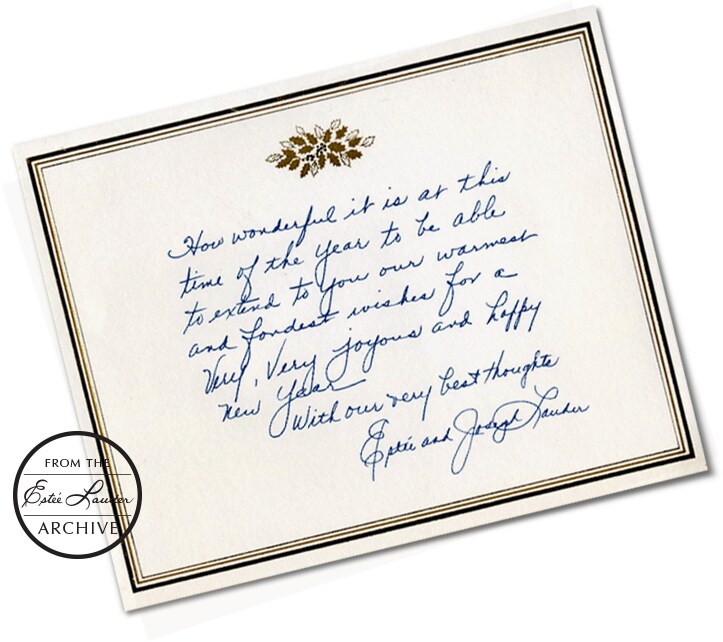 How wonderful it is at this
time of the year to be able
to extend to you our warmest
and fondest wishes for a
Very, Very joyous and happy
new year
With our very best thoughts
Estée and Joseph Lauder
FROM THE
Estée Lauder
ARCHIVE